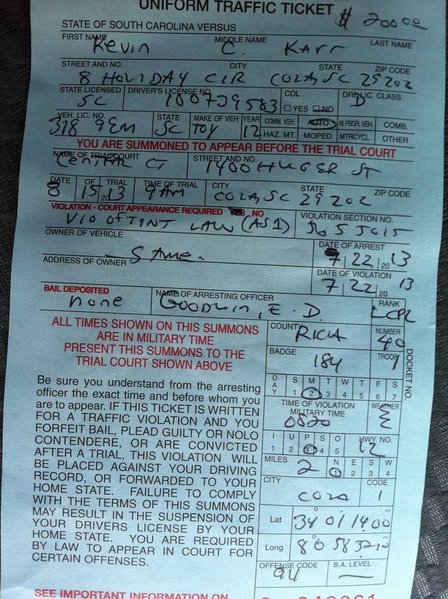 UNIFORM TRAFFIC TICKET $ 200.00
STATE OF SOUTH CAROLINA VERSUS
FIRST NAME MIDDLE NAME LAST NAME
Kevin C. Karr
STREET AND NO. CITY STATE ZIP CODE
8 HOLIDAY CIR COLA, SC 29202
STATE LICENSED DRIVER'S LICENSE NO. CDL DR. LIC. CLASS
SC YES NO D
VEH. LIC. NO. STATE MAKE OF VEH YEAR COMM. VEH. AUTO 16 PSGR. VEH. COMB.
SC TOY 12 HAZ. MT. MOPED MTRCYCL. OTHER
YOU ARE SUMMONED TO APPEAR BEFORE THE TRIAL COURT
NAME OF TRIAL COURT STREET AND NO.
CENTRAL CT 1400 HUGER ST
DATE OF TRIAL TIME OF TRIAL CITY STATE ZIP CODE
8 15 13 9AM COLA, SC 29202
VIOLATION - COURT APPEARANCE REQUIRED NO VIOLATION SECTION NO.
VIO OF TINT LAW (AS1) 56 5 5015
OWNER OF VEHICLE DATE OF ARREST
Same. 7 22 2013
ADDRESS OF OWNER DATE OF VIOLATION
7 22 2013
BAIL DEPOSITED NAME OF ARRESTING OFFICER RANK
none GOODWIN, E. D. LCPL
ALL TIMES SHOWN ON THIS SUMMONS
ARE IN MILITARY TIME
PRESENT THIS SUMMONS TO THE
TRIAL COURT SHOWN ABOVE
COUNTY NUMBER
RICH 40
BADGE TROOP
184 1
DOCKET NO.
DAY S M T W T F S
1 2 3 4 5 6 7
TIME OF VIOLATION
MILITARY TIME WEATHER
0820
I U P S O HWY. NO.
1 2 4 5 12
MILES N E S W
2 1 2 3 4
CITY CODE
COLA 1
Lat 34 01 1400
Long
OFFENSE CODE B.A. LEVEL
Be sure you understand from the arresting
officer the exact time and before whom you
are to appear. IF THIS TICKET IS WRITTEN
FOR A TRAFFIC VIOLATION AND YOU
FORFEIT BAIL, PLEAD GUILTY OR NOLO
CONTENDERE, OR ARE CONVICTED
AFTER A TRIAL, THIS VIOLATION WILL
BE PLACED AGAINST YOUR DRIVING
RECORD, OR FORWARDED TO YOUR
HOME STATE. FAILURE TO COMPLY
WITH THE TERMS OF THIS SUMMONS
MAY RESULT IN THE SUSPENSION OF
YOUR DRIVERS LICENSE BY YOUR
HOME STATE. YOU ARE REQUIRED
BY LAW TO APPEAR IN COURT FOR
CERTAIN OFFENSES.
SEE IMPORTANT INFORMATION ON